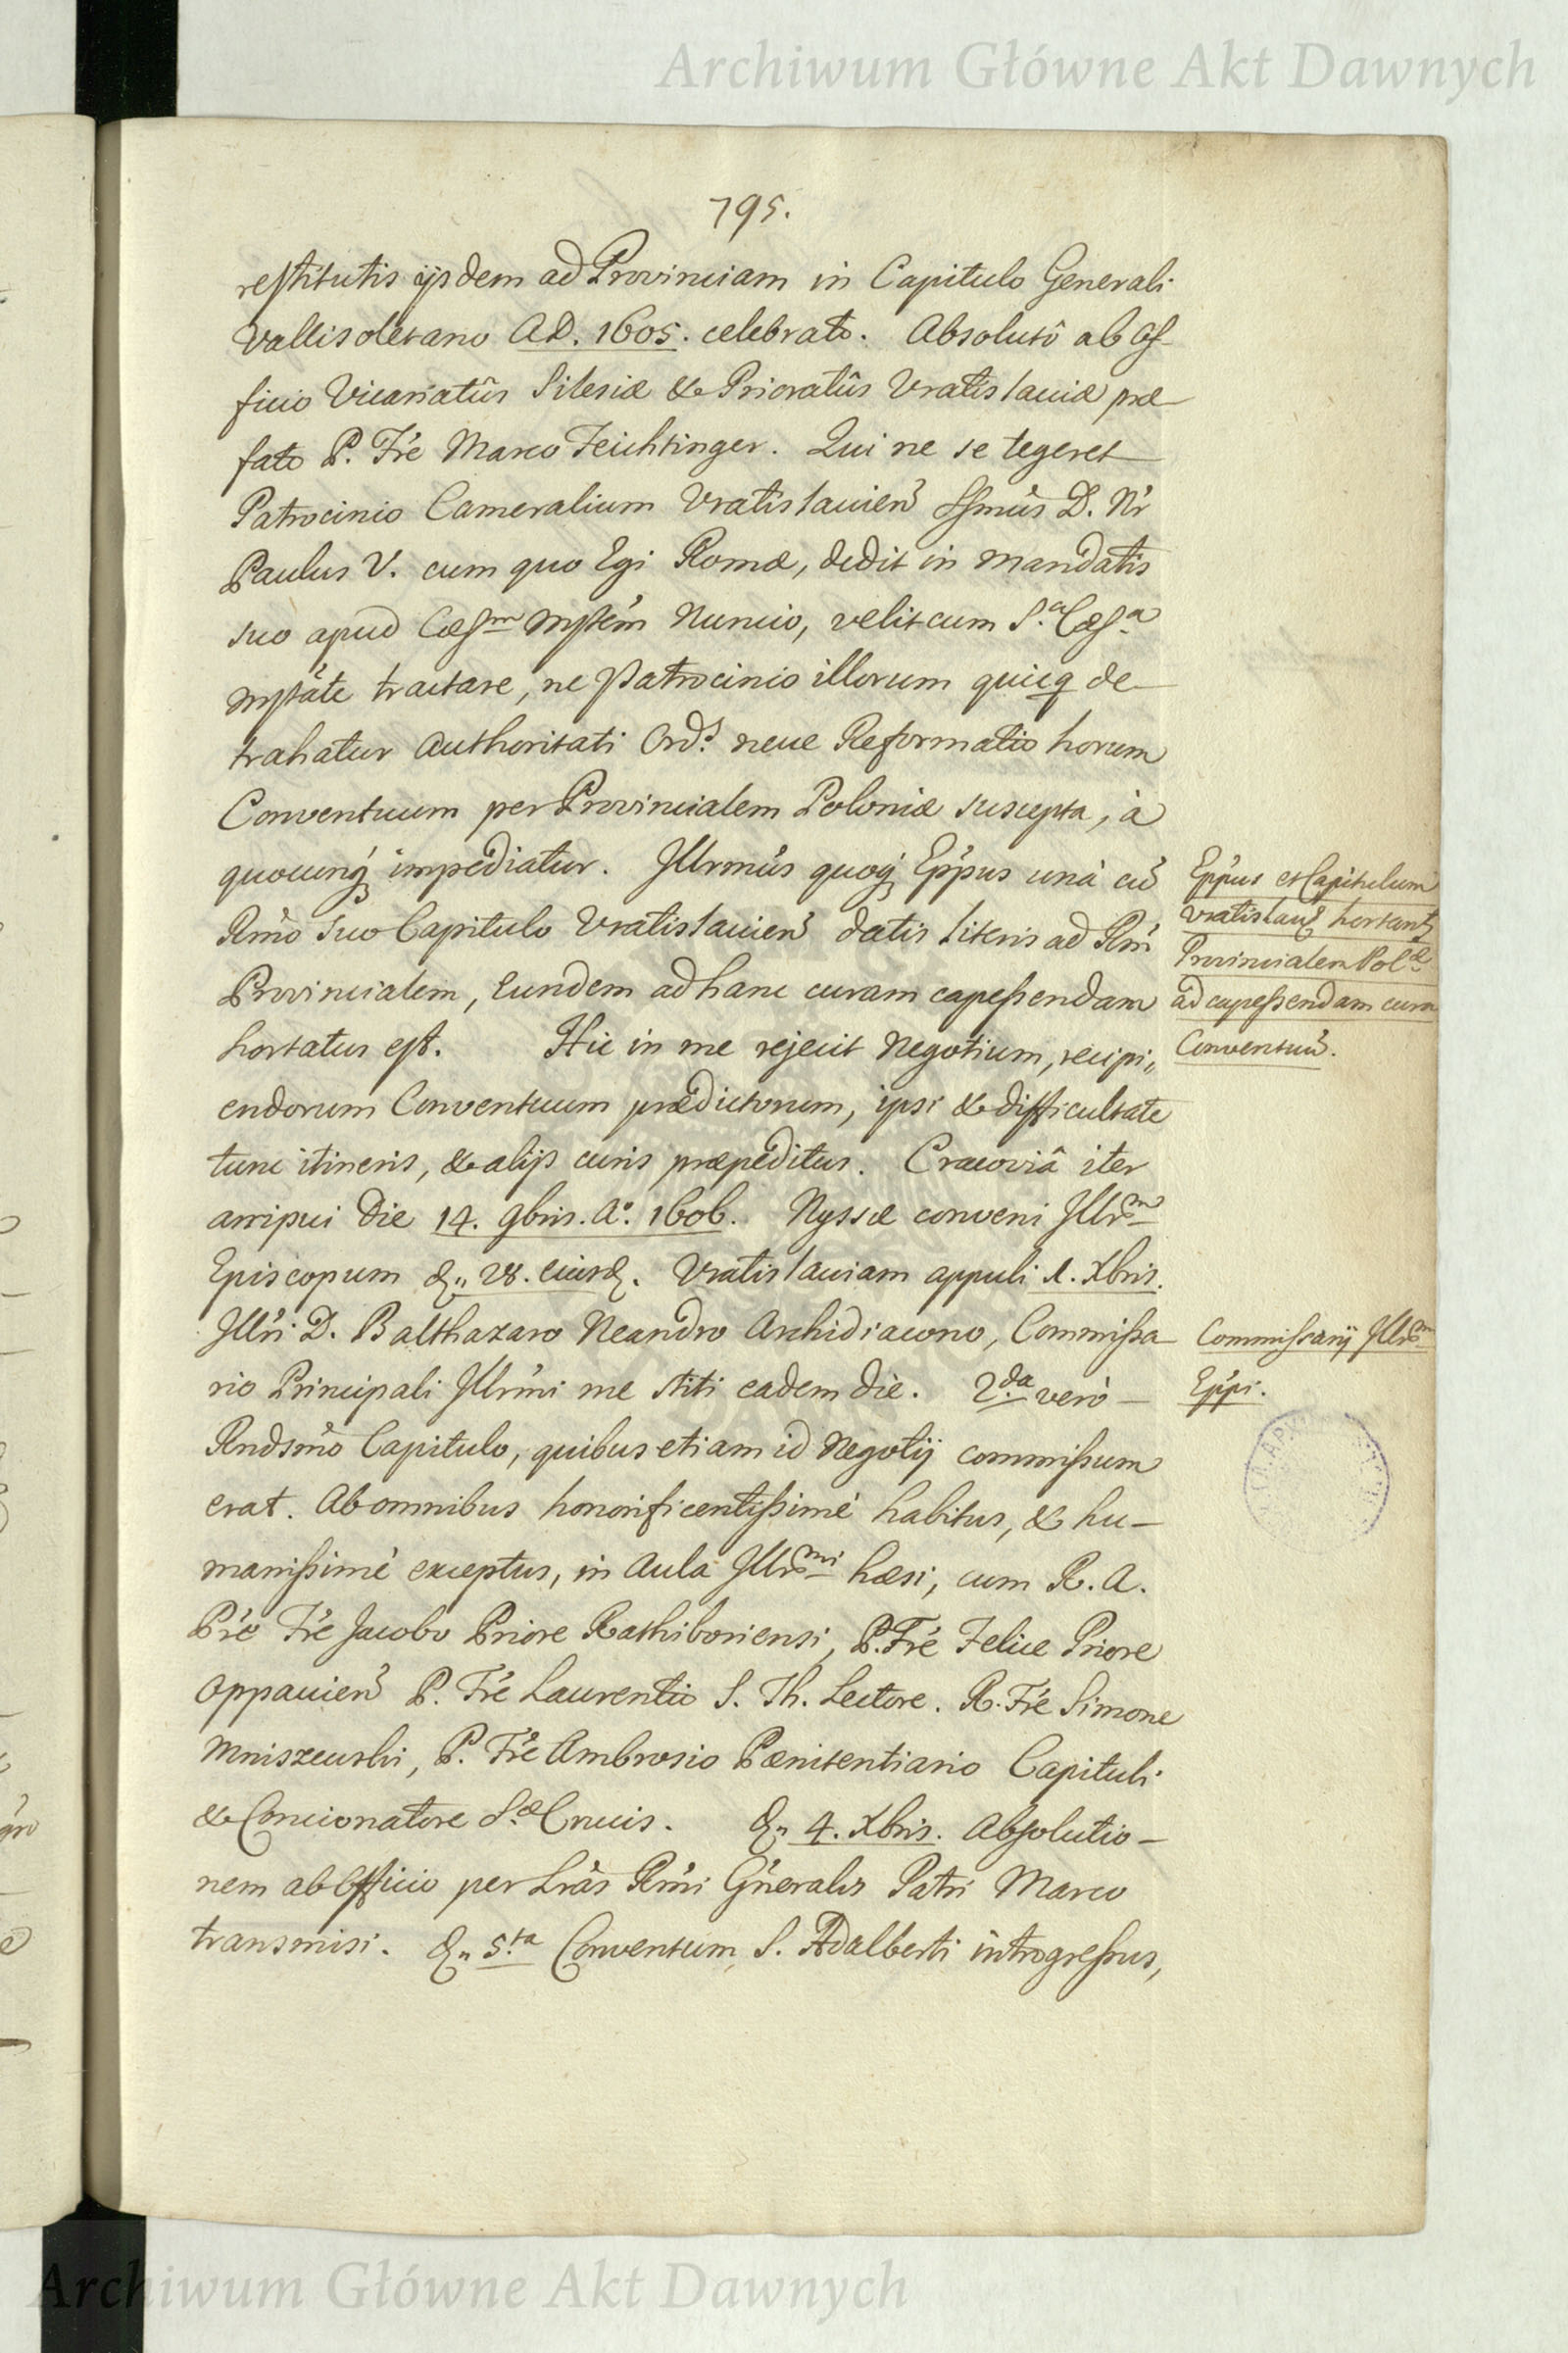 Archiwum Główne Akt Dawnych
795.
restitutis ijsdem ad Provinciam in Capitulo Generali
Vallisoletano AD. 1605. celebrato. Absolutô ab Of-
ficio Vicariatûs Silesiæ & Prioratûs Vratislauiæ præ-
fato P. Fr̃e Marco Feichtinger. Qui ne se tegeret
Patrocinio Cameralium Vratislauien̄ Ssmûs D. Nr̃
Paulus V. cum quo Egi Romæ, dedit in mandatis
suo apud Cæsm Mptem̃ Nuncio, velit cum S.a Cæsa
Mptãte tractare, ne Patrocinio illorum quicq de-
trahatur Authoritati Ords. neue Reformatio horum
Conventuum per Provincialem Poloniæ suscepta, à
quocunq́ impediatur. Jllrmûs quoq́ Ep̃pus unà cũ
Rm̃o suo Capitulo Vratislauien̄ datis literis ad Rm̃
Provincialem, Eundem ad hanc curam capessendam
hortatus est. Hic in me rejecit Negotium, recipi„
endorum Conventuum prædictorum, ipsi & difficultate
tunc itineris, & alijs curis præpeditus. Cracoviâ iter
arripui Die 14. 9bris. Ao. 1606. Nyssæ conveni Jllrm̃
Episcopum d„ 28. eiusd. Vratislauiam appuli 1. Xbris.
Jllr̃i D. Balthazaro Neandro Archidiacono, Commissa-
rio Principali Jllrm̃i me stiti eadem die. 2da verò-
Rndsm̃o Capitulo, quibus etiam id Negotij commissum
erat. Ab omnibus honorificentissimè habitus, & hu-
manissimè exceptus, in Aula Jllrmi hæsi, cum R. A.
Pr̃e Fr̃e Jacobo Priore Rathiboriensi, P. Fr̃e Felice Priore
Oppauien̄ P. Fr̃e Laurentio S. Th. Lectore. R. Fr̃e Simone
Mniszewski, P. Fr̃e Ambrosio Pœnitentiario Capituli
& Concionatore S.æ Crucis. d„ 4. Xbris. Absolutio-
nem ab Officio per Lr̃as Rm̃i Gñeralis Patri Marco
transmisi. d„ 5.ta Conventum S. Adalberti introgressus,
Ep̃pus et Capitulum
Vratislau hortant
Provincialem Polæ
ad capessendam curam
Conventuũ.
Commissarij Jllrm̃
Ep̃pi.
Archiwum Główne Akt Dawnych